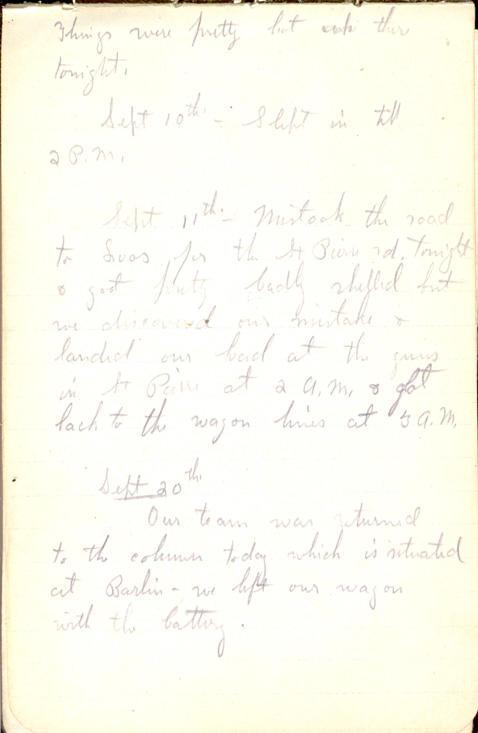 Things were pretty hot out there
tonight.
Sept 10th - Slept in till
2 P.M.
Sept 11th - Mistook the road
to for the St Pierre rd. tonight
& got pretty badly shelled but
we discovered our mistake &
landed our load at the guns
in St Pierre at 2 A.M. & got
back to the wagon lines at 5 A.M.
Sept 20th
Our team was returned
to the column today which is situated
at Barlin - we left our wagon
with the battery.